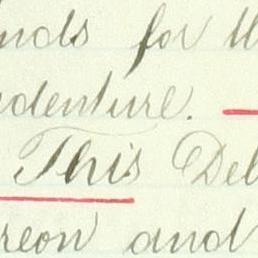 nds for th
denture.
This Deb
reon and